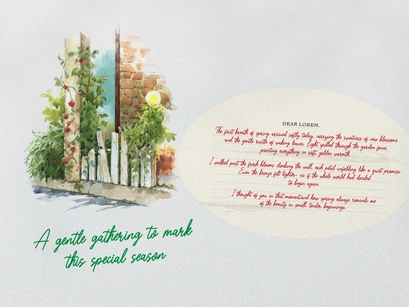 A gentle gathering to mark
this special season
DEAR LOREN,
The first breath of spring arrived softly today, carrying the sweetness of new blossoms
and the gentle rustle of waking leaves. Light spilled through the garden fence
painting everything in soft golden warmth.
I walked past the fresh blooms climbing the wall, each petal unfolding like a quiet promise.
Even the breeze felt lighter, as if the whole world had decided
to begin again.
I thought of you in that moment and how spring always reminds me
of the beauty in small tender beginnings.